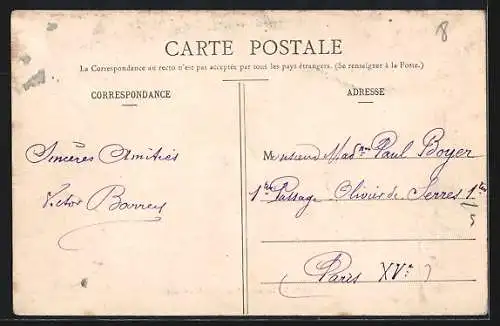 8
CARTE POSTALE
La Correspondance au recto n'est pas acceptée par tous les pays étrangers. (Se renseigner à la Poste.)
CORRESPONDANCE
ADRESSE
Sincères Amitiés
Monsieur Mad^me Paul Boyer
Victor
Passage Olivier de Serres
Paris XV^e